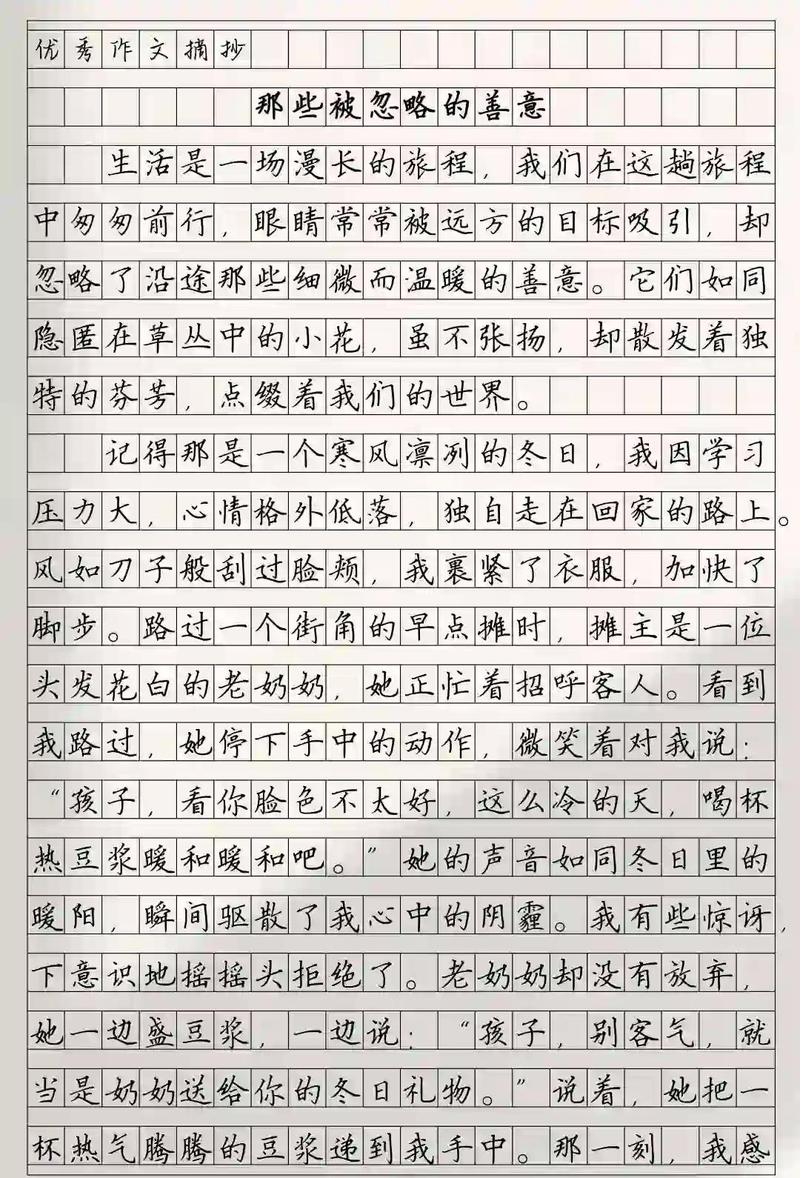 优秀作文摘抄
那些被忽略的善意
生活是一场漫长的旅程，我们在这趟旅程
中匆匆前行，眼睛常常被远方的目标吸引，却
忽略了沿途那些细微而温暖的善意。它们如同
隐匿在草丛中的小花，虽不张扬，却散发着独
特的芬芳，点缀着我们的世界。
记得那是一个寒风凛冽的冬日，我因学习
压力大，心情格外低落，独自走在回家的路上。
风如刀子般刮过脸颊，我裹紧了衣服，加快了
脚步。路过一个街角的早点摊时，摊主是一位
头发花白的老奶奶，她正忙着招呼客人。看到
我路过，她停下手中的动作，微笑着对我说：
“孩子，看你脸色不太好，这么冷的天，喝杯
热豆浆暖和暖和吧。”她的声音如同冬日里的
暖阳，瞬间驱散了我心中的阴霾。我有些惊讶，
下意识地摇摇头拒绝了。老奶奶却没有放弃，
她一边盛豆浆，一边说：“孩子，别客气，就
当是奶奶送给你的冬日礼物。”说着，她把一
杯热气腾腾的豆浆递到我手中。那一刻，我感